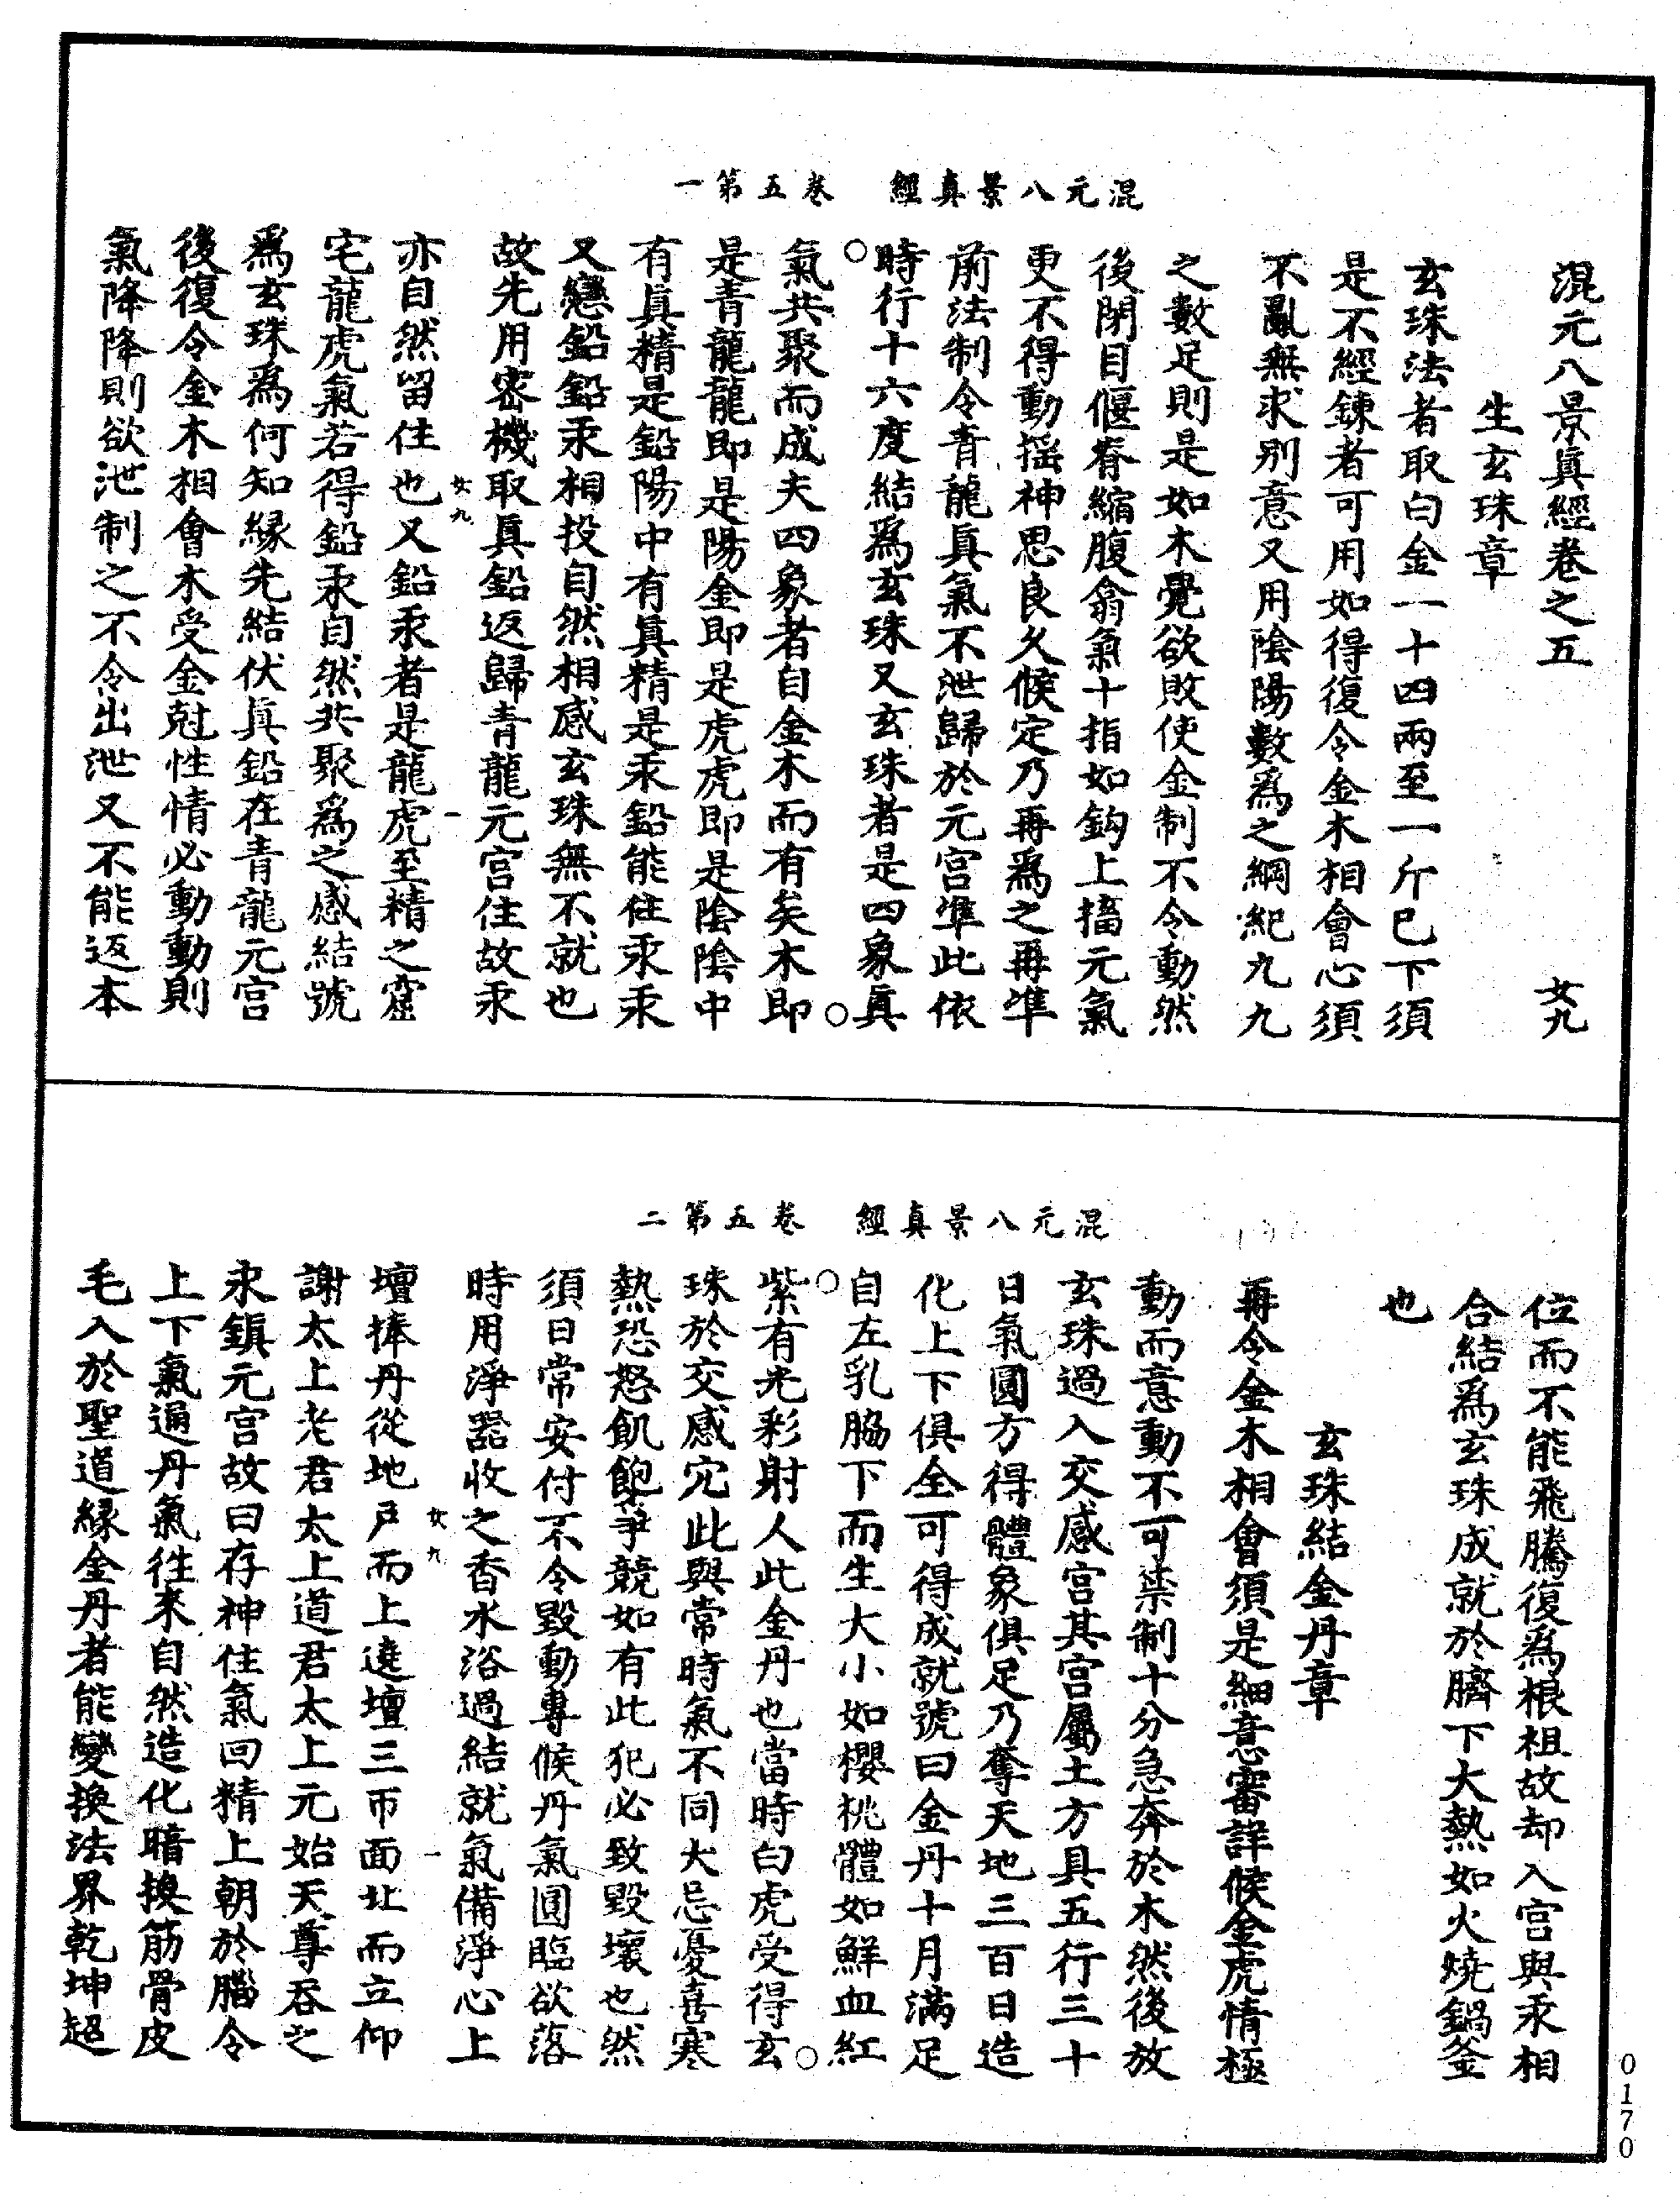 混元八景真經　卷五第一
混元八景眞經卷之五　女九
生玄珠章
玄珠法者取白金一十四兩至一斤巳下須
是不經鍊者可用如得復令金木相會心須
不亂無求别意又用陰陽數爲之綱紀九九
之數足則是如木覺欲敗使金制不令動然
後閉目偃脊縮腹翕氣十指如鈎上搐元氣
更不得動摇神思良久候定乃再爲之再準
前法制令青龍眞氣不泄歸於元宫準此依
時行十六度結爲玄珠又玄珠者是四象眞
氣共聚而成夫四象者自金木而有矣木即
是青龍龍即是陽金即是虎虎即是陰陰中
有眞精是鉛陽中有眞精是汞鉛能住汞汞
又戀鉛鉛汞相投自然相感玄珠無不就也
故先用密機取眞鉛返歸青龍元宫住故汞
女九　一
亦自然留住也又鉛汞者是龍虎至精之窟
宅龍虎氣若得鉛汞自然共聚爲之感結號
爲玄珠爲何知緣先結伏眞鉛在青龍元宫
後復令金木相會木受金尅性情必動動則
氣降降則欲泄制之不令出泄又不能返本
混元八景真經　卷五第二
位而不能飛騰復爲根祖故却入宫與汞相
合結爲玄珠成就於臍下大熱如火燒鍋釜
也
玄珠結金丹章
再令金木相會須是細意審詳候金虎情極
動而意動不可禁制十分急奔於木然後放
玄珠過入交感宫其宫屬土方具五行三十
日氣圓方得體象俱足乃奪天地三百日造
化上下俱全可得成就號曰金丹十月滿足
自左乳脇下而生大小如櫻桃體如鮮血紅
紫有光彩射人此金丹也當時白虎受得玄
珠於交感宂此與常時氣不同大忌憂喜寒
熱恐怒飢飽爭競如有此犯必致毀壞也然
須日常安付不令毀動專候丹氣圓臨欲落
時用淨器收之香水浴過結就氣備淨心上
女九　一
壇捧丹從地戸而上遶壇三帀面北而立仰
謝太上老君太上道君太上元始天尊吞之
永鎭元宫故曰存神住氣回精上朝於腦令
上下氣通丹氣徃來自然造化暗換筋骨皮
毛入於聖道緣金丹者能變換法界乾坤超
0170